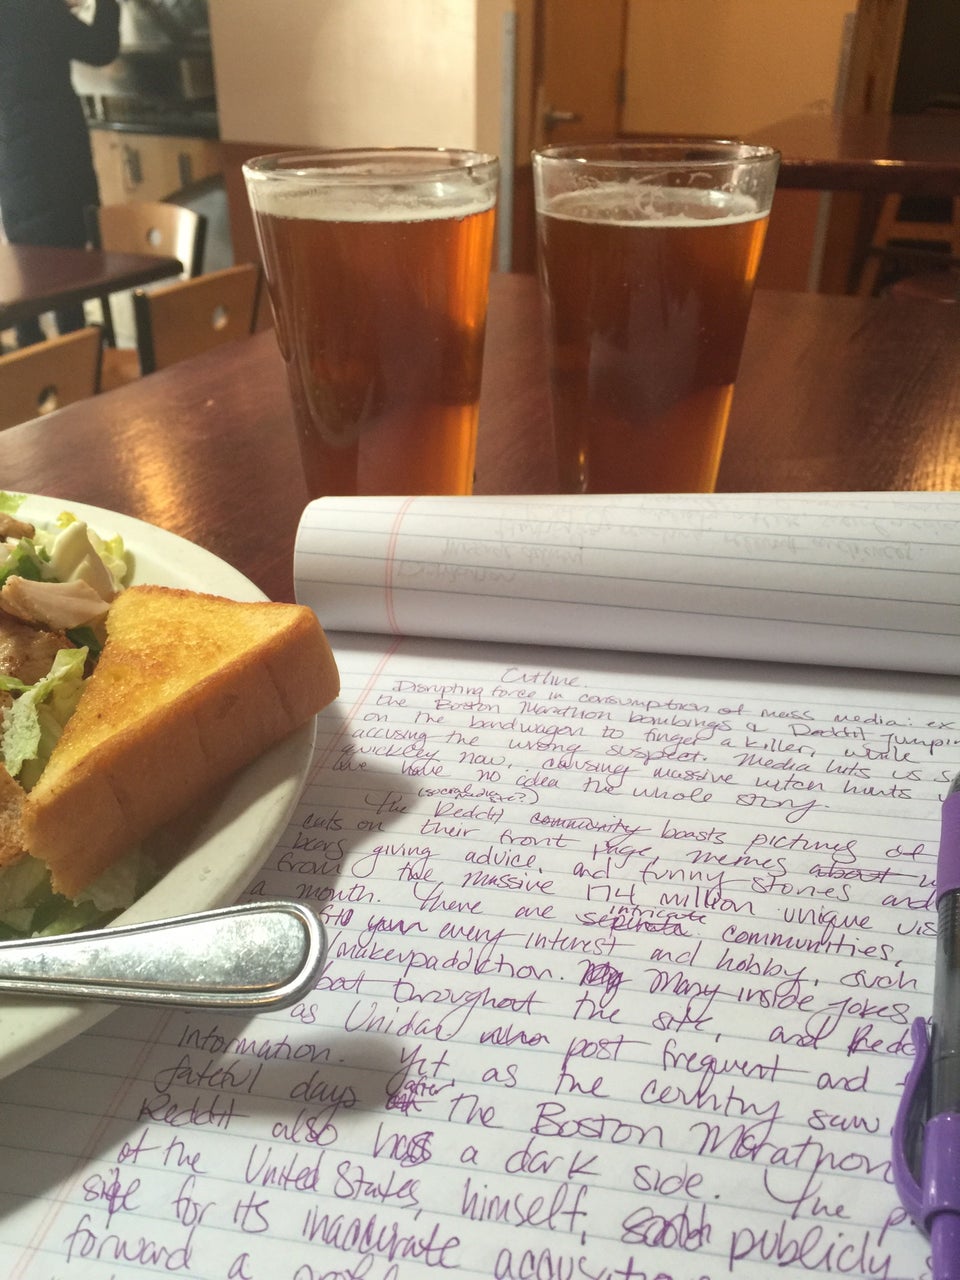 Outline
Disrupting force in consumption of mass media: ex
the Boston Marathon bombings & Reddit jumpin
on the bandwagon to finger a killer, while
accusing the wrong suspect. Media hits us s
quickley now, causing massive witch hunts
we have no idea the whole story.
(socialsphere?)
The Reddit community boasts pictures of
cats on their front page, memes about w
bears giving advice, and funny stories and
from the massive 174 million unique vis
a month. There are intricate communities,
every interest and hobby, such
/makeupaddiction. Many inside jokes
throughout the site, and Redd
as Unidan who post frequent and
information. Yet as the country saw
fateful days after the Boston Marathon
Reddit also has a dark side. The p
of the United States, himself, publicly
site for its inaccurate
forward a